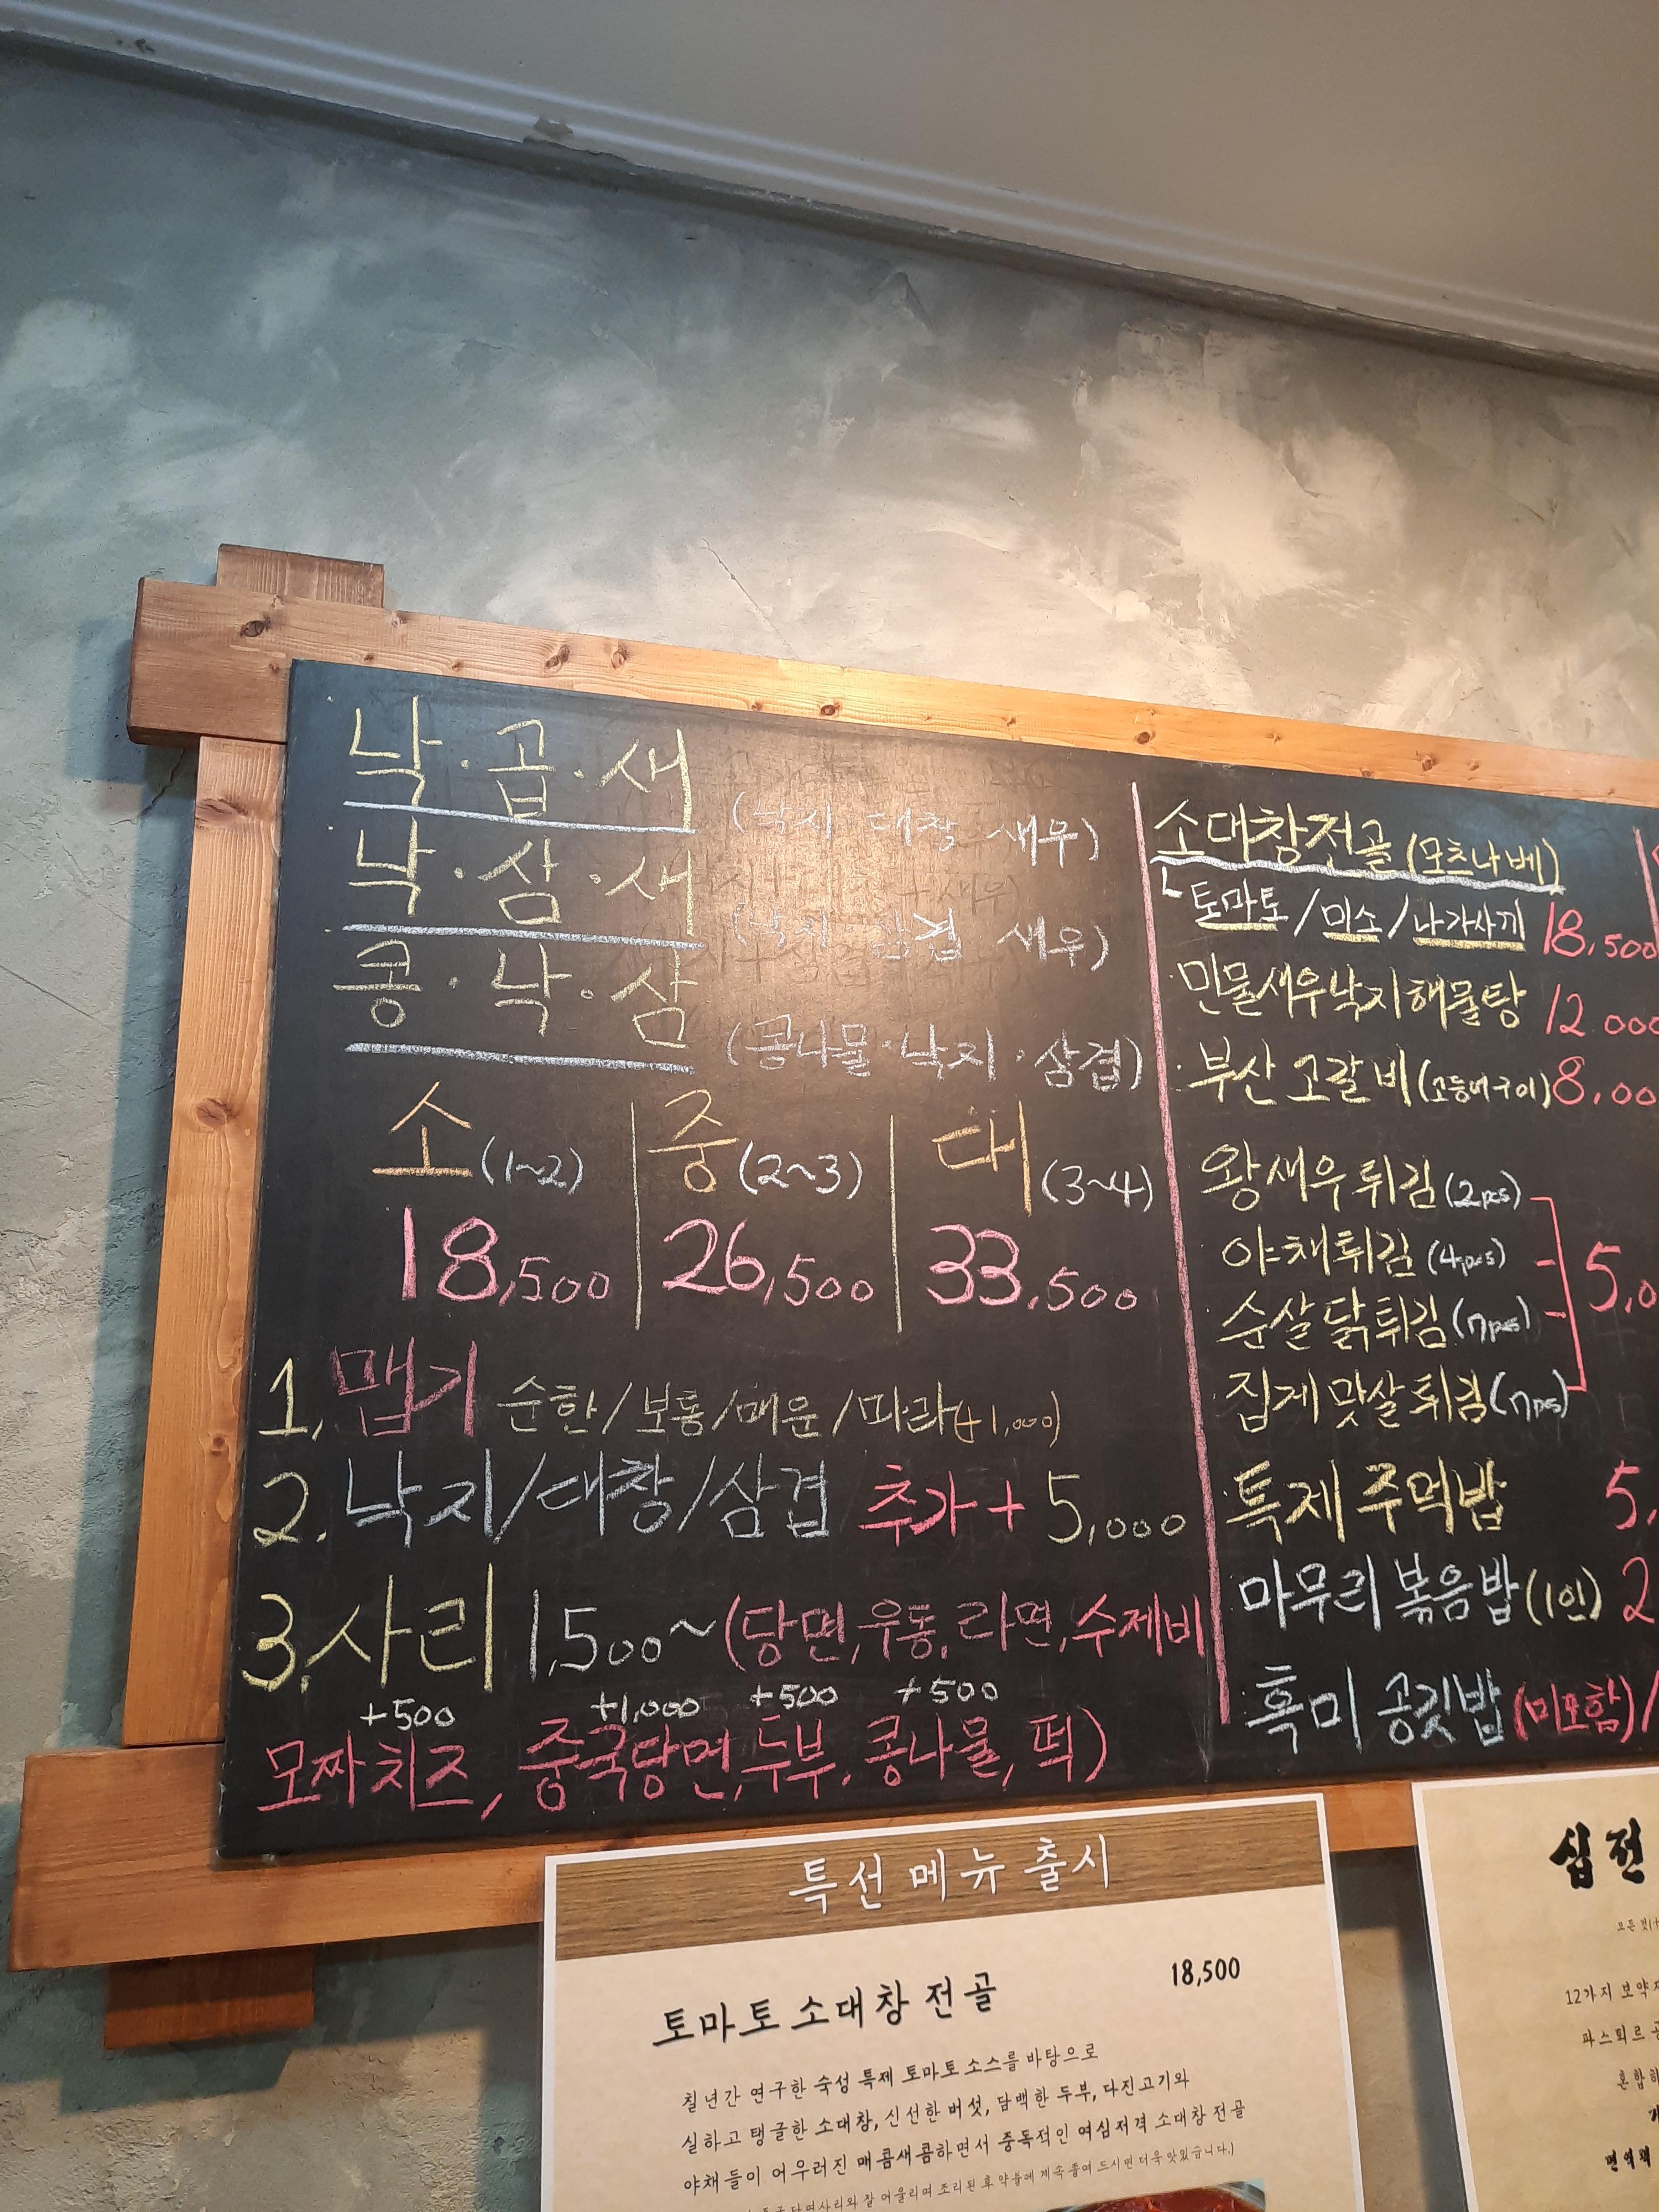 낙·곱·새
(낙지 대창 새우)
낙·삼·새
(낙지 삼겹 새우)
콩·낙·삼
(콩나물·낙지·삼겹)
소(1~2) 중(2~3) 대(3~4)
18,500 26,500 33,500
1, 맵기 순한/보통/매운/마라(+1,000)
2. 낙지/대창/삼겹 추가+5,000
3. 사리 1,500~(당면,우동,라면,수제비
+500 +1,000 +500 +500
모짜치즈, 중국당면,두부,콩나물, 떡)
소대창전골(모츠나베)
토마토/미소/나가사끼 18,500
민물새우낙지해물탕 12,000
부산고갈비(고등어구이)8,00
왕새우튀김(2pcs)
야채튀김(4pcs)
5,0
순살닭튀김(7ps)
집게맛살튀김(7ps)
특제주먹밥 5,
마무리볶음밥(1인) 2
흑미 공깃밥(미포함)/
특선 메뉴 출시
토마토 소대창 전골 18,500
칠년간 연구한 숙성 특제 토마토 소스를 바탕으로
실하고 탱글한 소대창, 신선한 버섯, 담백한 두부, 다진고기와
야채들이 어우러진 매콤새콤하면서 중독적인 여심저격 소대창 전골
중국당면사리와 잘 어울리며 조리된 후 약불에 계속 졸여 드시면 더욱 맛있습니다.)
십전
12가지 보약재
파스퇴르 공
혼합하
면역력